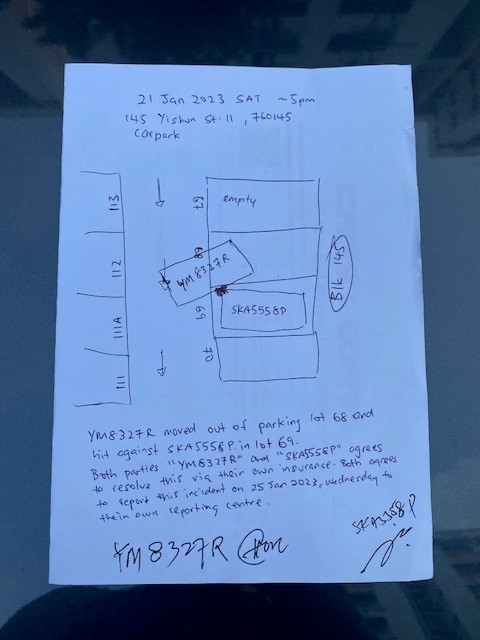 21 Jan 2023 SAT ~5pm
145 Yishun St. 11, 760145
Carpark
113
67
empty
112
68
YM8327R
Blk 145
111A
69
SKA5558P
111
70
YM8327R moved out of parking lot 68 and
hit against SKA5558P in lot 69.
Both parties "YM8327R" and "SKA5558P" agrees
to resolve this via their own insurance. Both agrees
to report this incident on 25 Jan 2023, Wednesday to
their own reporting centre.
SKA5558P
YM8327R